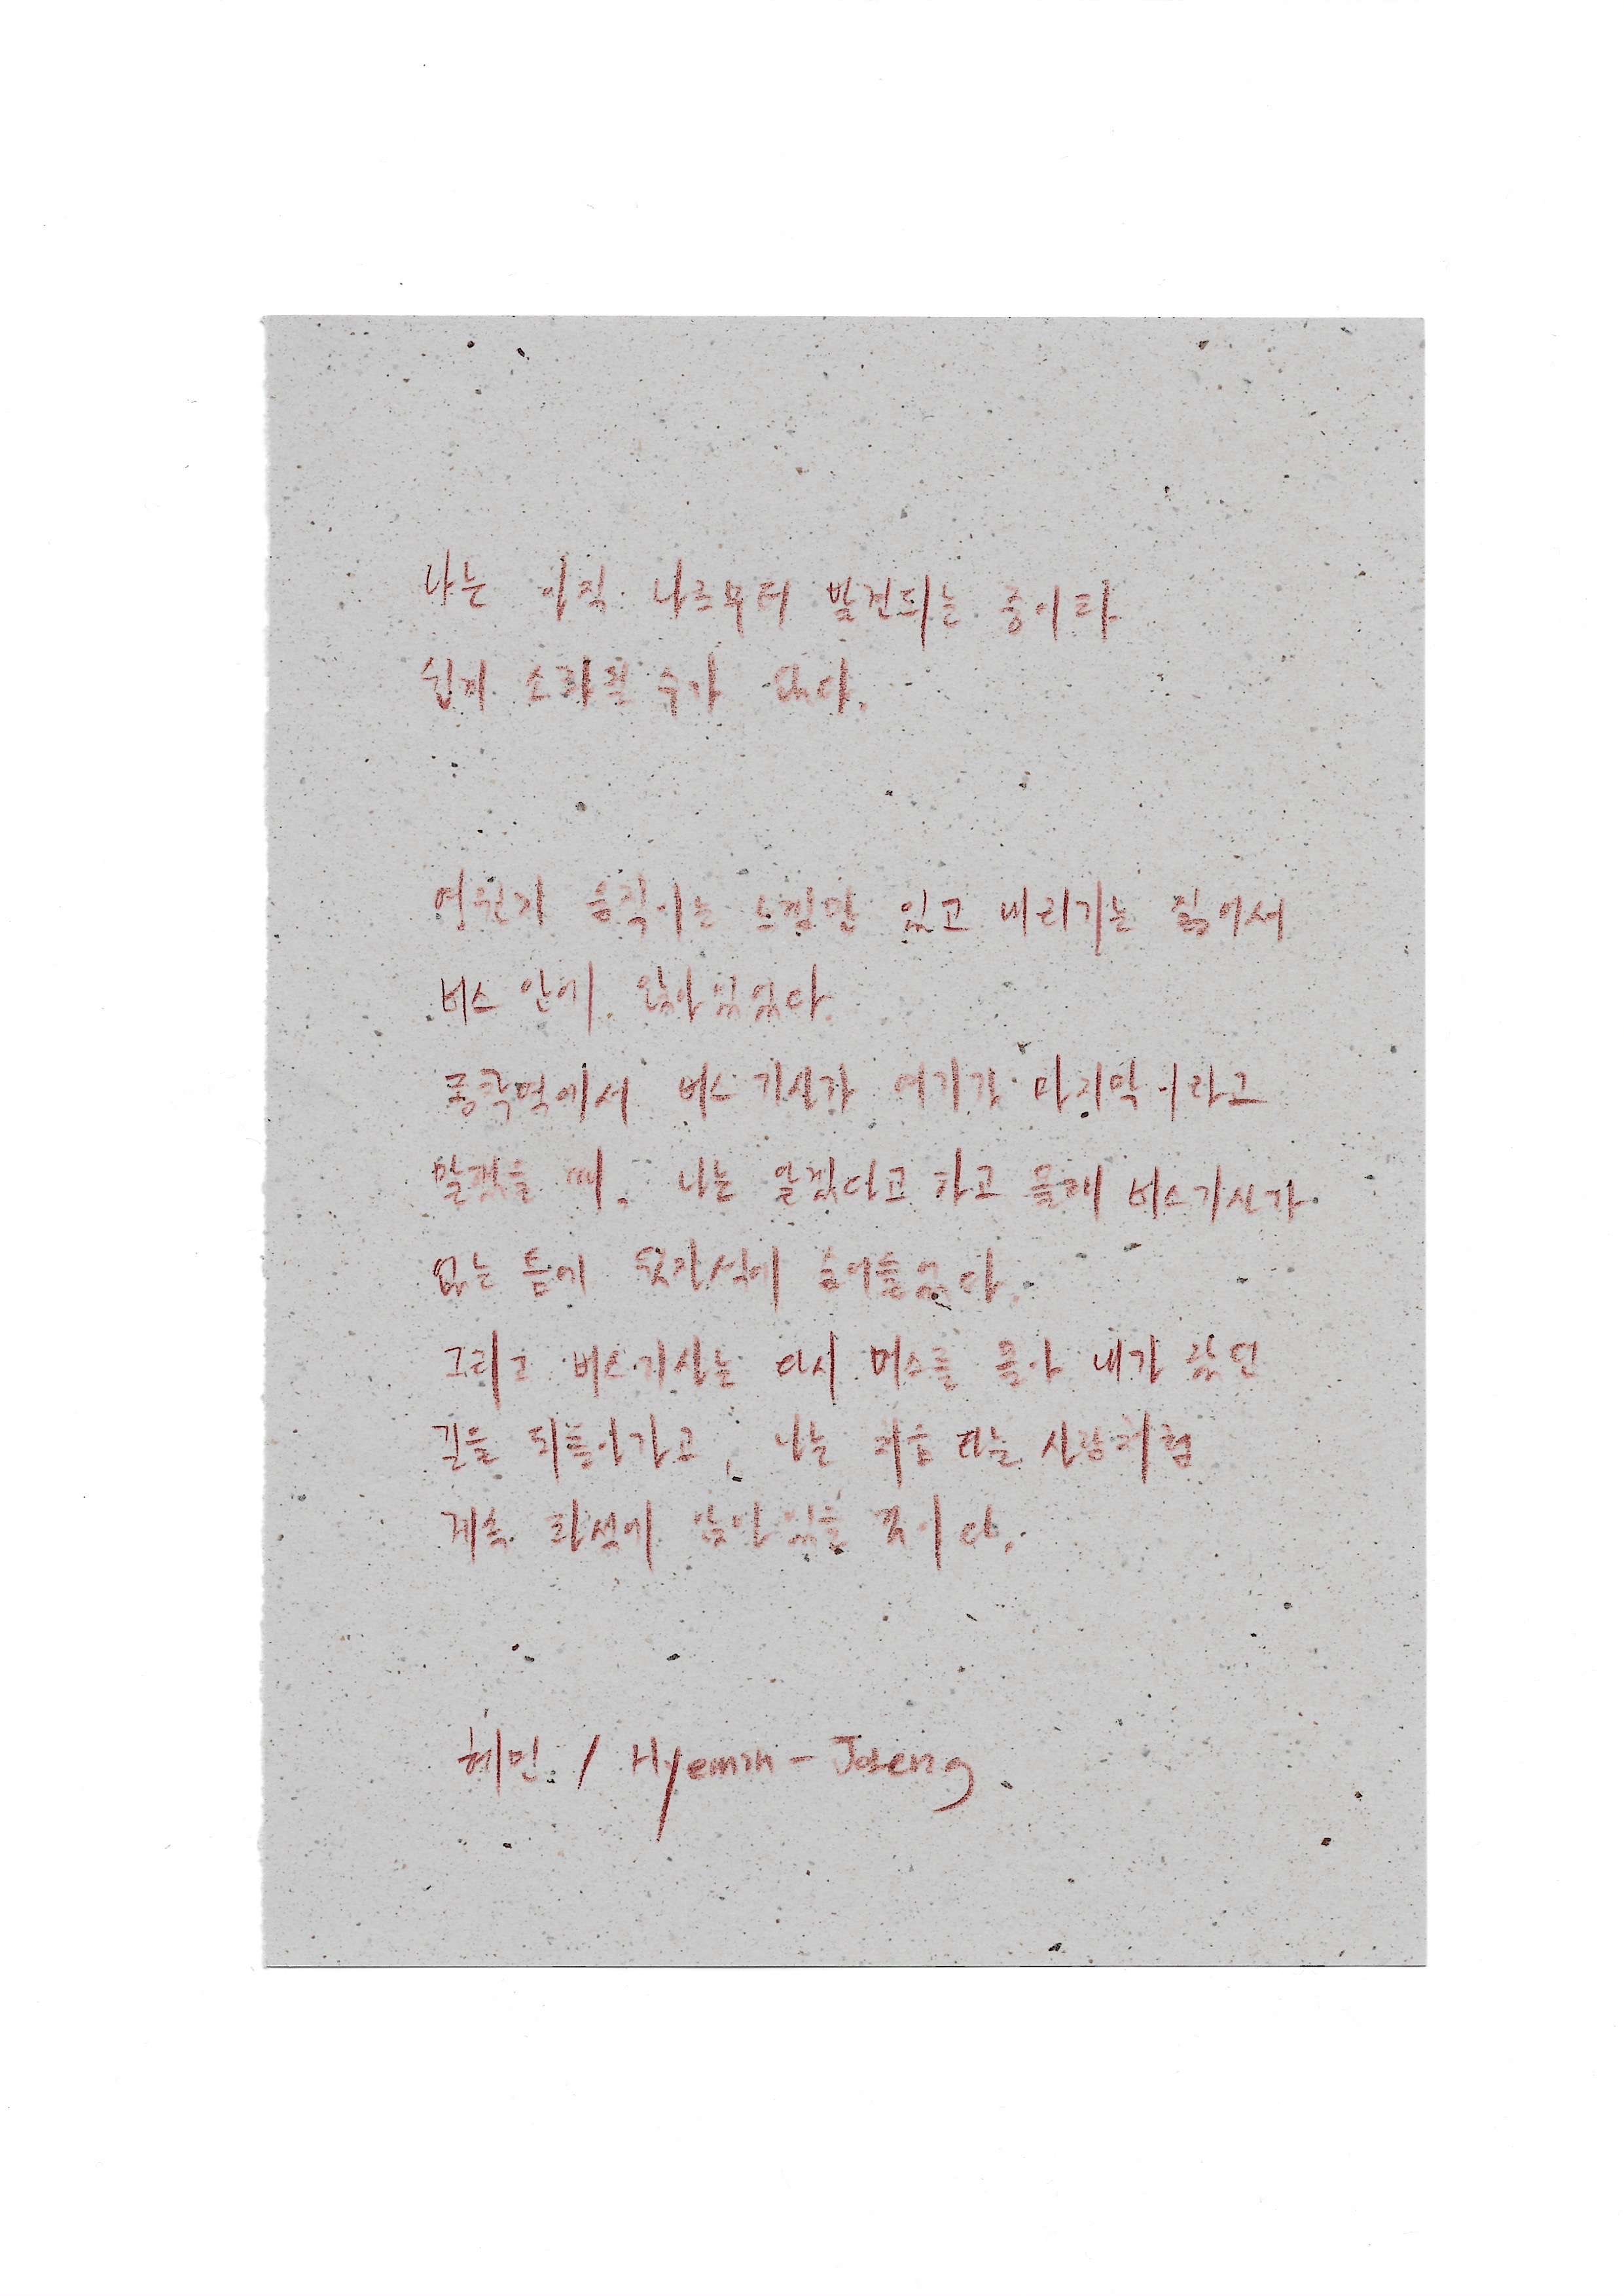 나는 아직 나로부터 발견되는 중이라
쉽게 소화될 수가 없다.
영원히 움직이는 느낌만 있고 내리기는 싫어서
버스 안에 앉아있었다.
종착역에서 버스기사가 여기가 마지막이라고
말했을 때, 나는 알겠다고 하고 몰래 버스기사가
없는 틈에 뒷좌석에 숨어들었다.
그리고 버스기사는 다시 버스를 몰아 내가 왔던
길을 되돌아가고, 나는 처음 타는 사람처럼
계속 좌석에 앉아 있을 것이다.
혜민 / Hyemin - Joseng